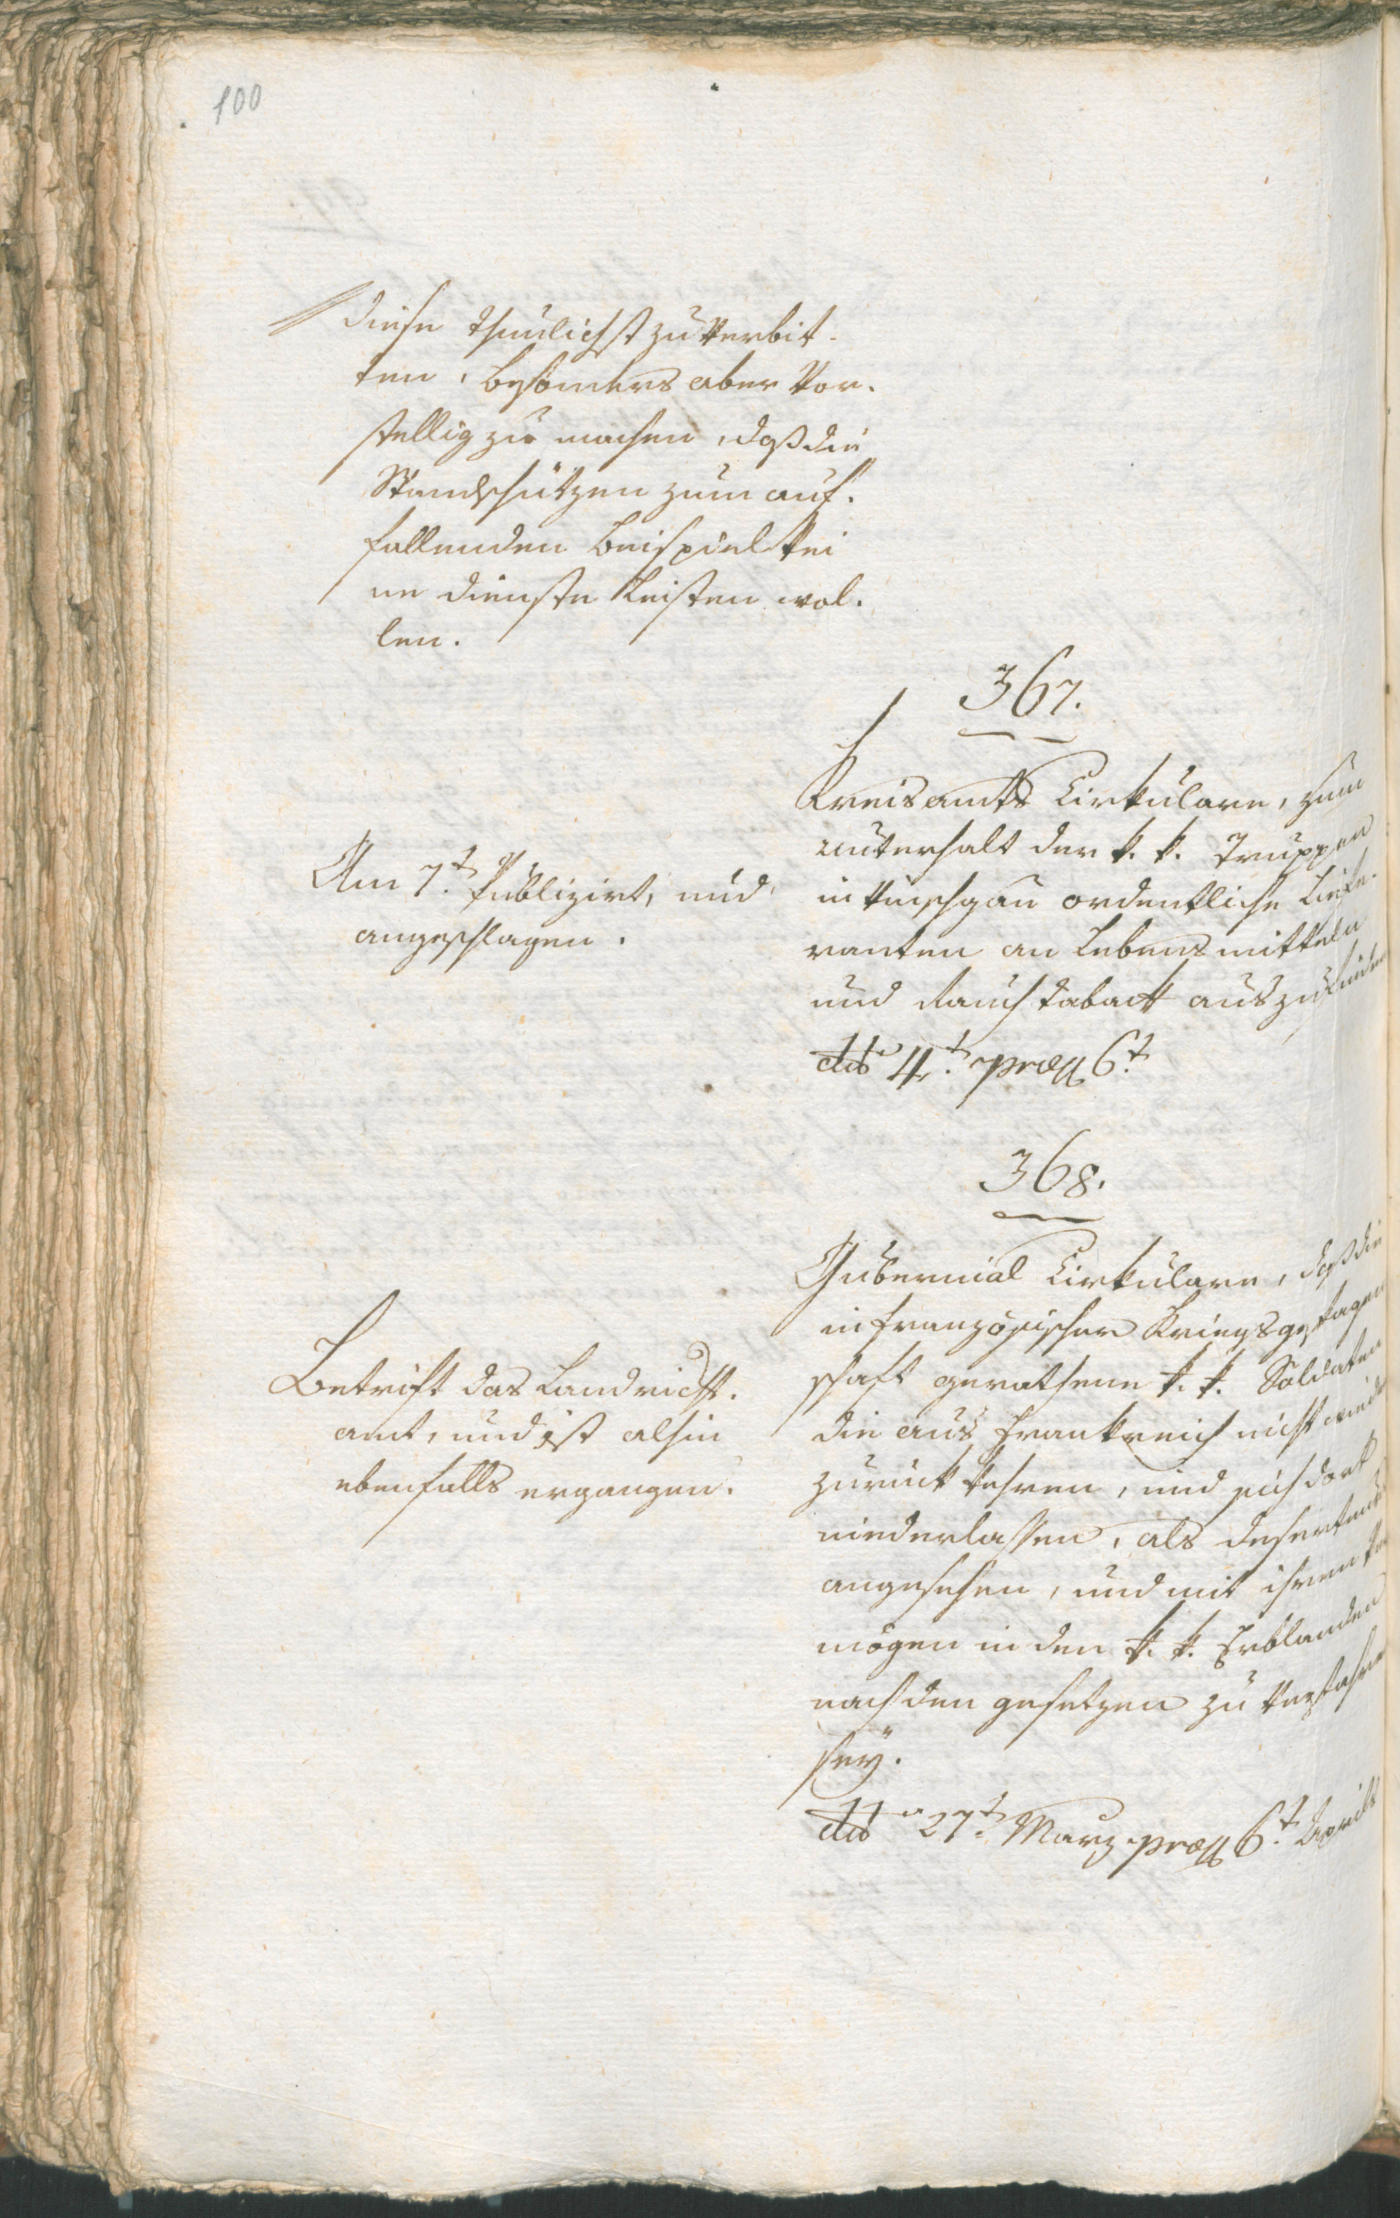 100
// diese thunlichst zu verbit-
ten, besonders aber vor-
stellig zu machen, daß die
Standschützen zum auf-
fallenden Beispiel kei
ne dienste leisten wol-
len.
367.
Kreisamts Cirkulare, zum
unterhalt der k. k. Truppen
in Vinschgau ordentliche Liefe-
ranten an Lebensmitteln
und Rauchtaback auszufinden
dto 4.t præs 6.t
Am 7.t Publizirt, und
angeschlagen.
368.
Gubernial Cirkulare, daß die
in französischer Kriegsgefangen
schaft gerathene k. k. Soldaten
die aus Frankreich nicht wieder
zurück kehren, und sich dort
niederlassen, als deserteurs
angesehen, und mit ihrem Ver
mögen in den k. k. Erblanden
nach den gesetzen zu verfahren
seÿ.
dto 27.t Marz præs 6.t Aprils
Betrift das Landricht-
amt, und ist alhin
ebenfalls ergangen.